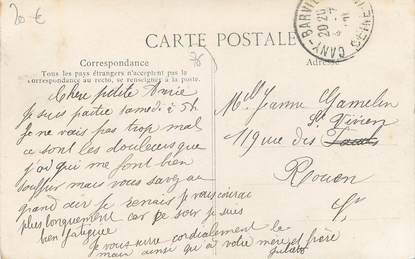 20 €
CARTE POSTALE
Correspondance
Tous les pays étrangers n'acceptent pas la
correspondance au recto, se renseigner à la poste.
Adresse
CANY-BARVILLE
20
Chère petite Amie
Je suis partie samedi à 5h
Je ne vais pas trop mal
ce sont les douleurs que
j'ai qui me font bien
souffrir mais vous savez au
grand air je renais je vous écrirai
plus longuement car ce soir je suis
bien fatiguée
Je vous serre cordialement la
main ainsi qu'à votre mère et frère
Mell Jeanne Gamelin
St Vivien
119 rue des
Rouen